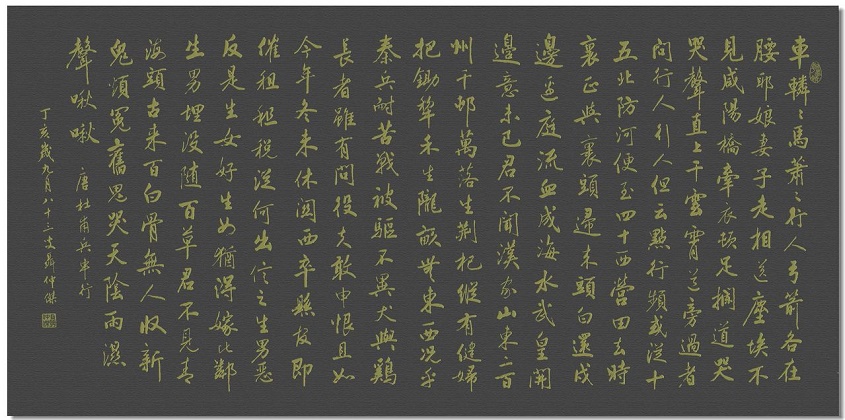 車轔〻馬蕭〻行人弓箭各在
腰耶娘妻子走相送塵埃不
見咸陽橋牽衣頓足攔道哭
哭聲直上干雲霄道旁過者
問行人行人但云點行頻或從十
五北防河便至四十西營田去時
裏正與裹頭歸來頭白還戍
邊邊庭流血成海水武皇開
邊意未已君不聞漢家山東二百
州千邨萬落生荊杞縱有健婦
把鋤犁禾生隴畝無東西況乎
秦兵耐苦戰被驅不異犬與雞
長者雖有問役夫敢申恨且如
今年冬未休關西卒縣官即
催租租稅從何出信之生男惡
反是生女好生女猶得嫁比鄰
生男埋沒隨百草君不見青
海頭古来百白骨無人收新
鬼煩冤舊鬼哭天陰雨濕
聲啾啾 唐杜甫兵車行
丁亥歲九月八十三叟聶仲傑